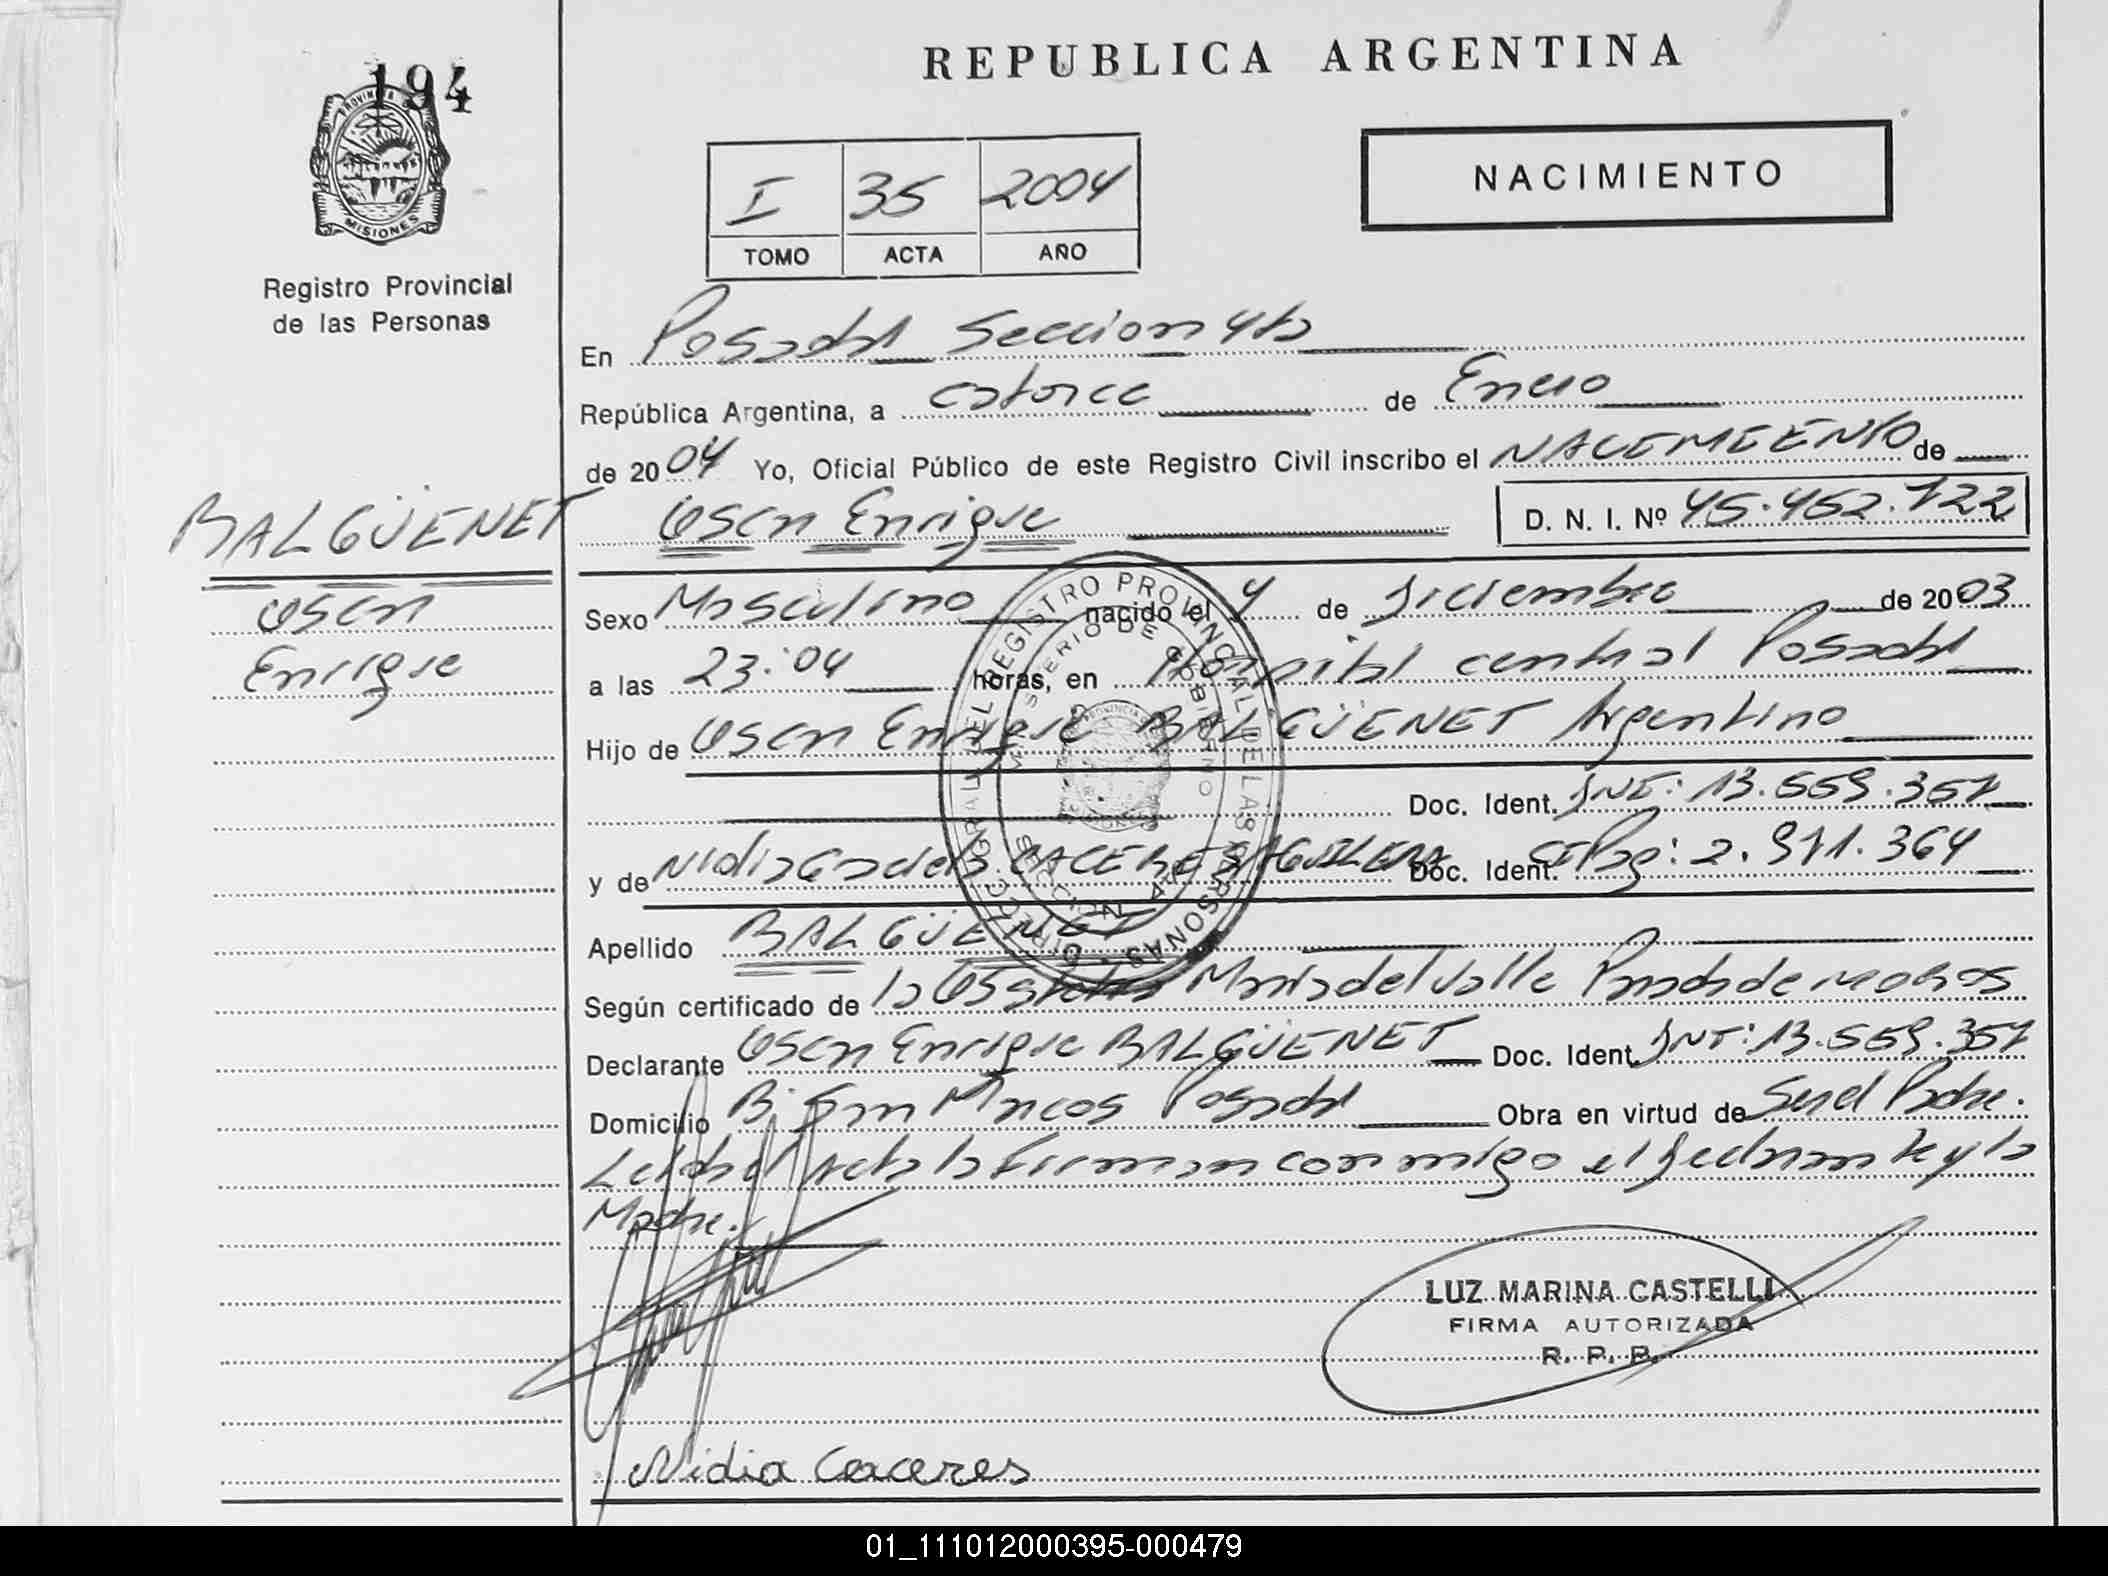 194
PROVINCIA DE
MISIONES
Registro Provincial
de las Personas
REPUBLICA ARGENTINA
I 35 2004
TOMO ACTA AÑO
NACIMIENTO
En Posadas Seccion 4ta
República Argentina, a catorce de Enero
de 2004 Yo, Oficial Público de este Registro Civil inscribo el NACIMIENTO de
BALGÜENET
Oscar Enrique D. N. I. Nº 45.452.722
Oscar
Enrique
Sexo Masculino nacido el 4 de Diciembre de 2003
a las 23:04 horas, en Hospital central Posadas
Hijo de Oscar Enrique BALGÜENET Argentino
Doc. Ident. DNI: 13.559.357
y de Nidia Gadela CACERES AGUILERA Doc. Ident. CI Pag: 2.971.364
Apellido BALGÜENET
Según certificado de la Obstetra Maria del Valle Prada de
Declarante Oscar Enrique BALGÜENET Doc. Ident. DNI: 13.559.357
Domicilio B: San Marcos Posadas Obra en virtud de Ser el Padre.
Leida el Acta la firman conmigo el declarante y la
Madre.
DIREC. GRAL. DEL REGISTRO PROVINCIAL DE LAS PERSONAS
MINISTERIO DE GOBIERNO
LUZ MARINA CASTELLI
FIRMA AUTORIZADA
R. P. P.
Nidia Caceres
01_111012000395-000479